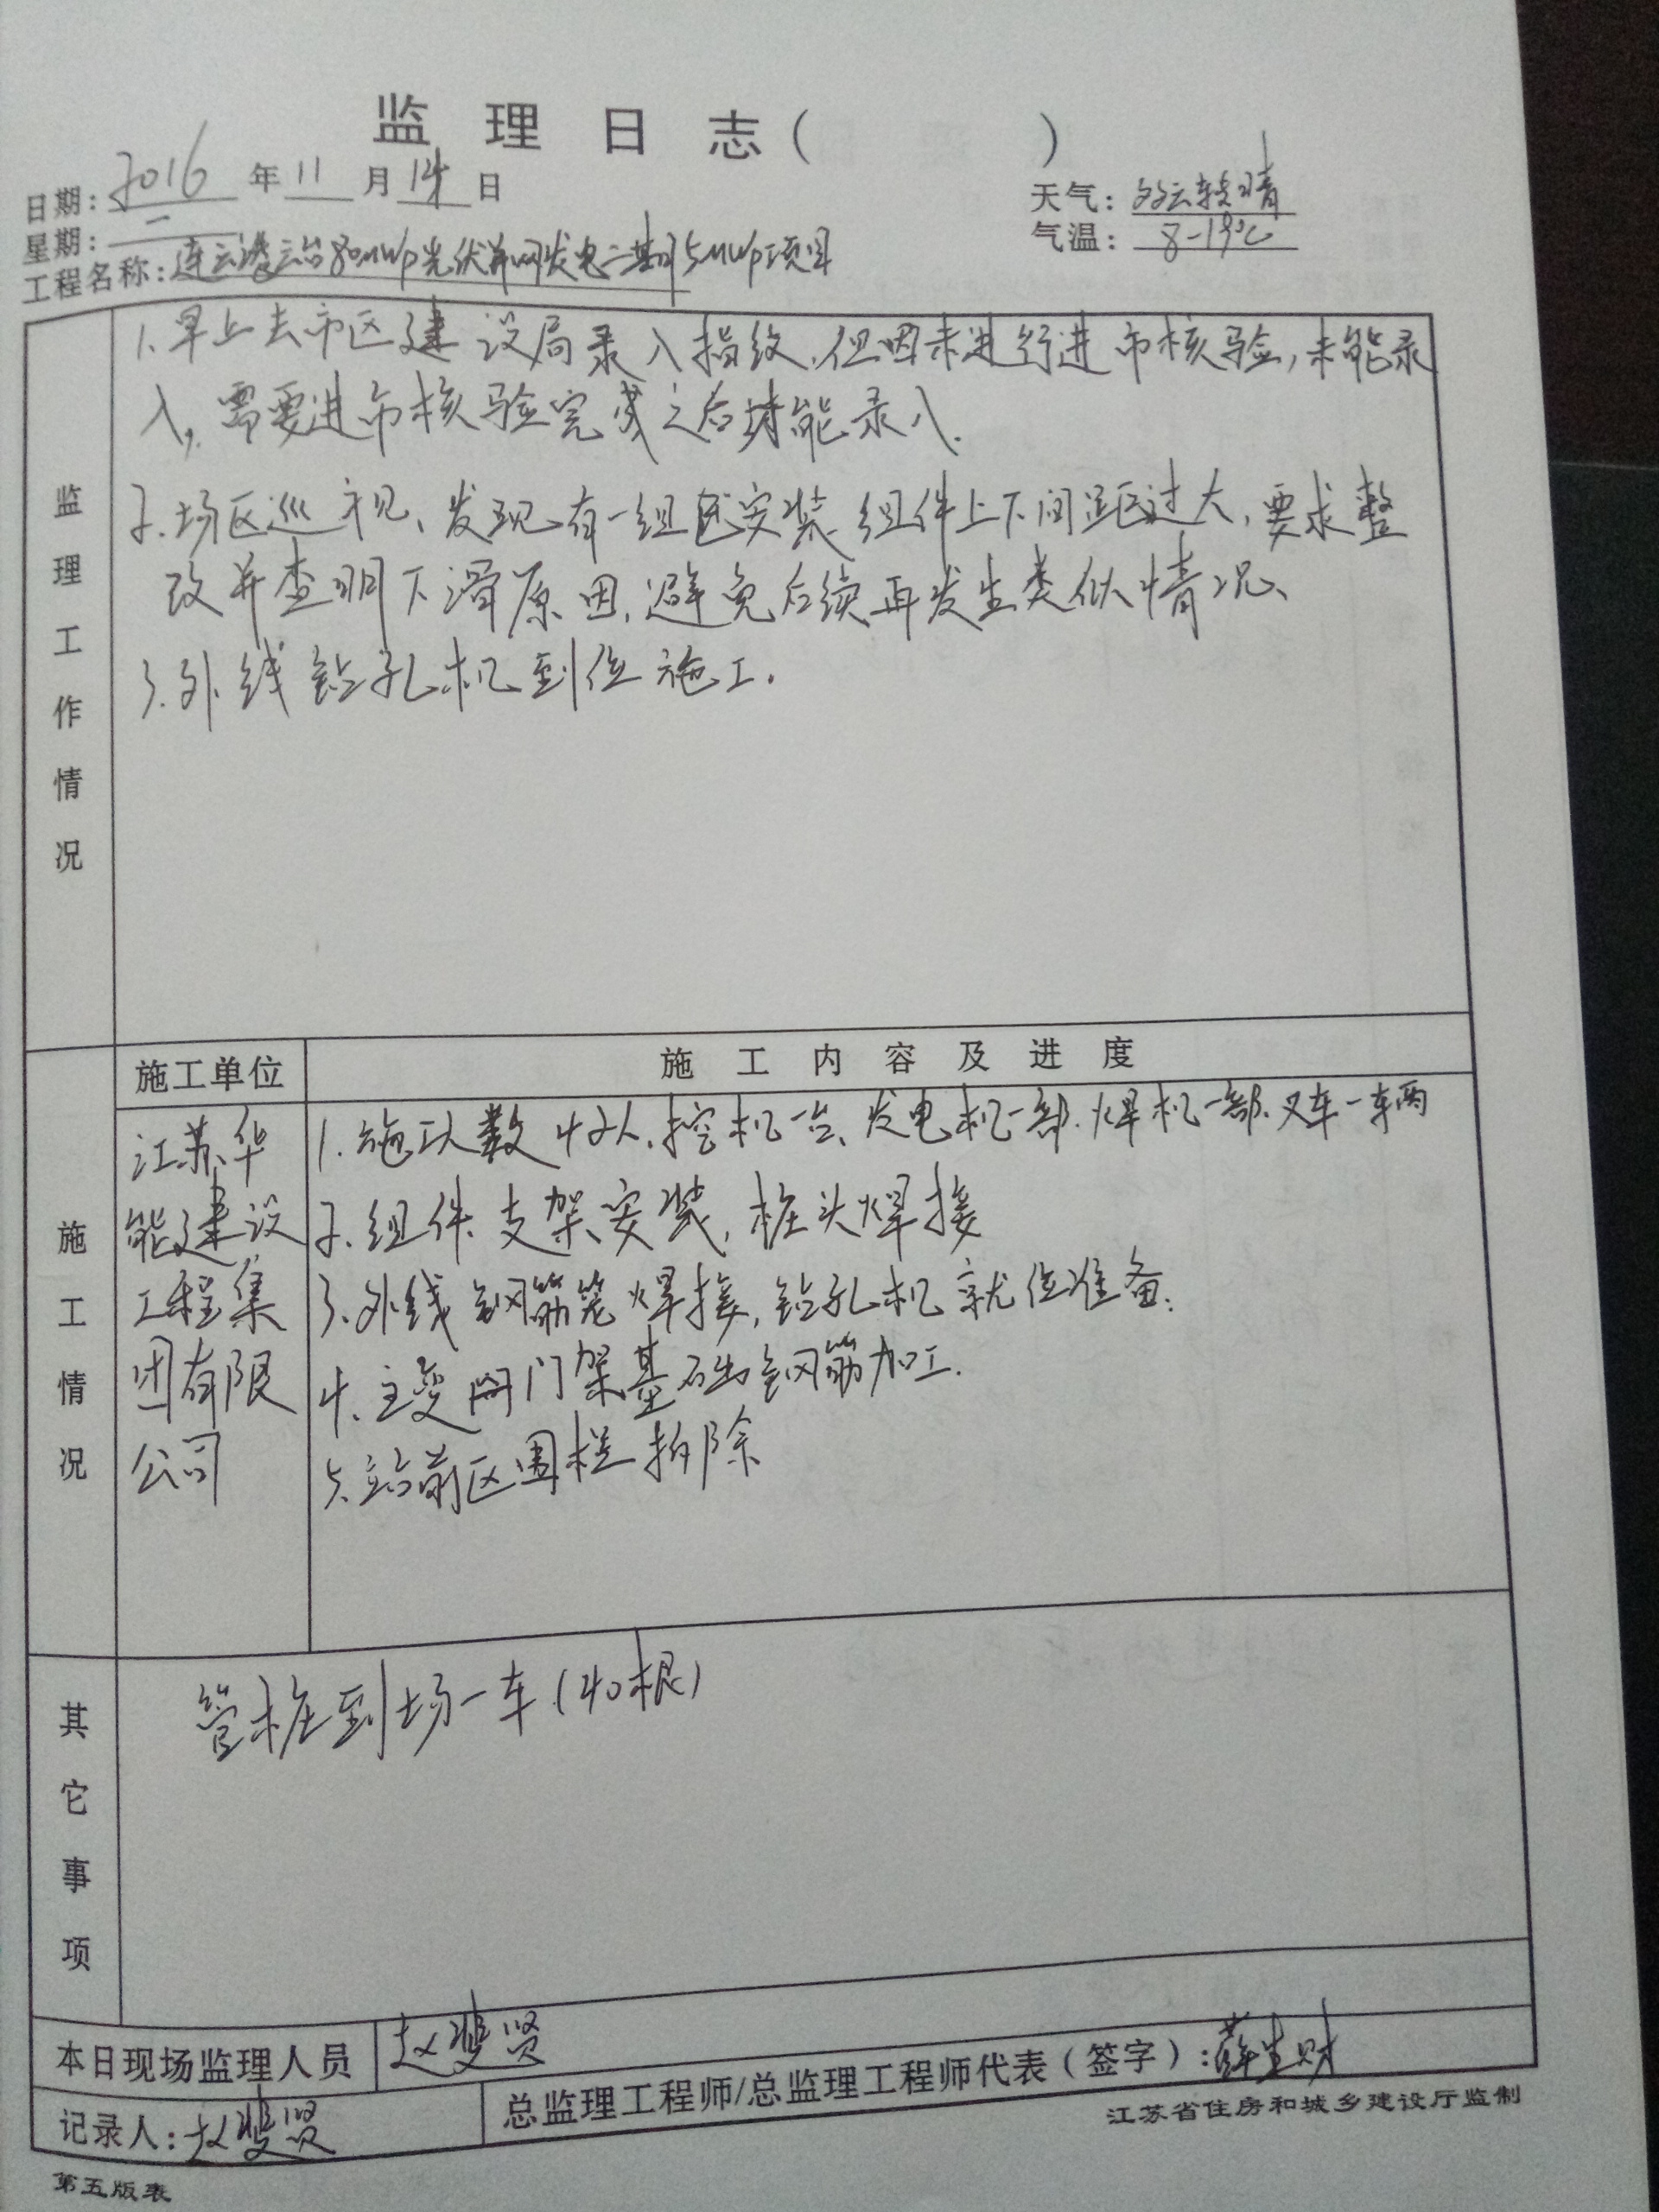 监理日志（ ）
日期：2016年11月14日
天气：多云转晴
星期：一
气温：8-19℃
工程名称：连云港云台80MWp光伏并网发电二期35MWp项目
监理工作情况
1.早上去市区建设局录入指纹，但因未进行进市核验，未能录
入，需要进市核验完成之后才能录入.
2.场区巡视、发现有一组已安装组件上下间距过大，要求整
改并查明下滑原因，避免后续再发生类似情况、
3.外线钻孔机到位施工.
施工单位
施工内容及进度
施工情况
江苏华
能建设
工程集
团有限
公司
1.施工人数42人、挖机一台、发电机一部.焊机一部.叉车一车两
2、组件支架安装，桩头焊接
3、外线钢筋笼焊接，钻孔机就位准备.
4、主变 门架基础钢筋加工.
5、站前区围栏拆除
其它事项
管桩到场一车(40根)
本日现场监理人员 赵斐贤
总监理工程师/总监理工程师代表（签字）：薛生财
记录人：赵斐贤
江苏省住房和城乡建设厅监制
第五版表